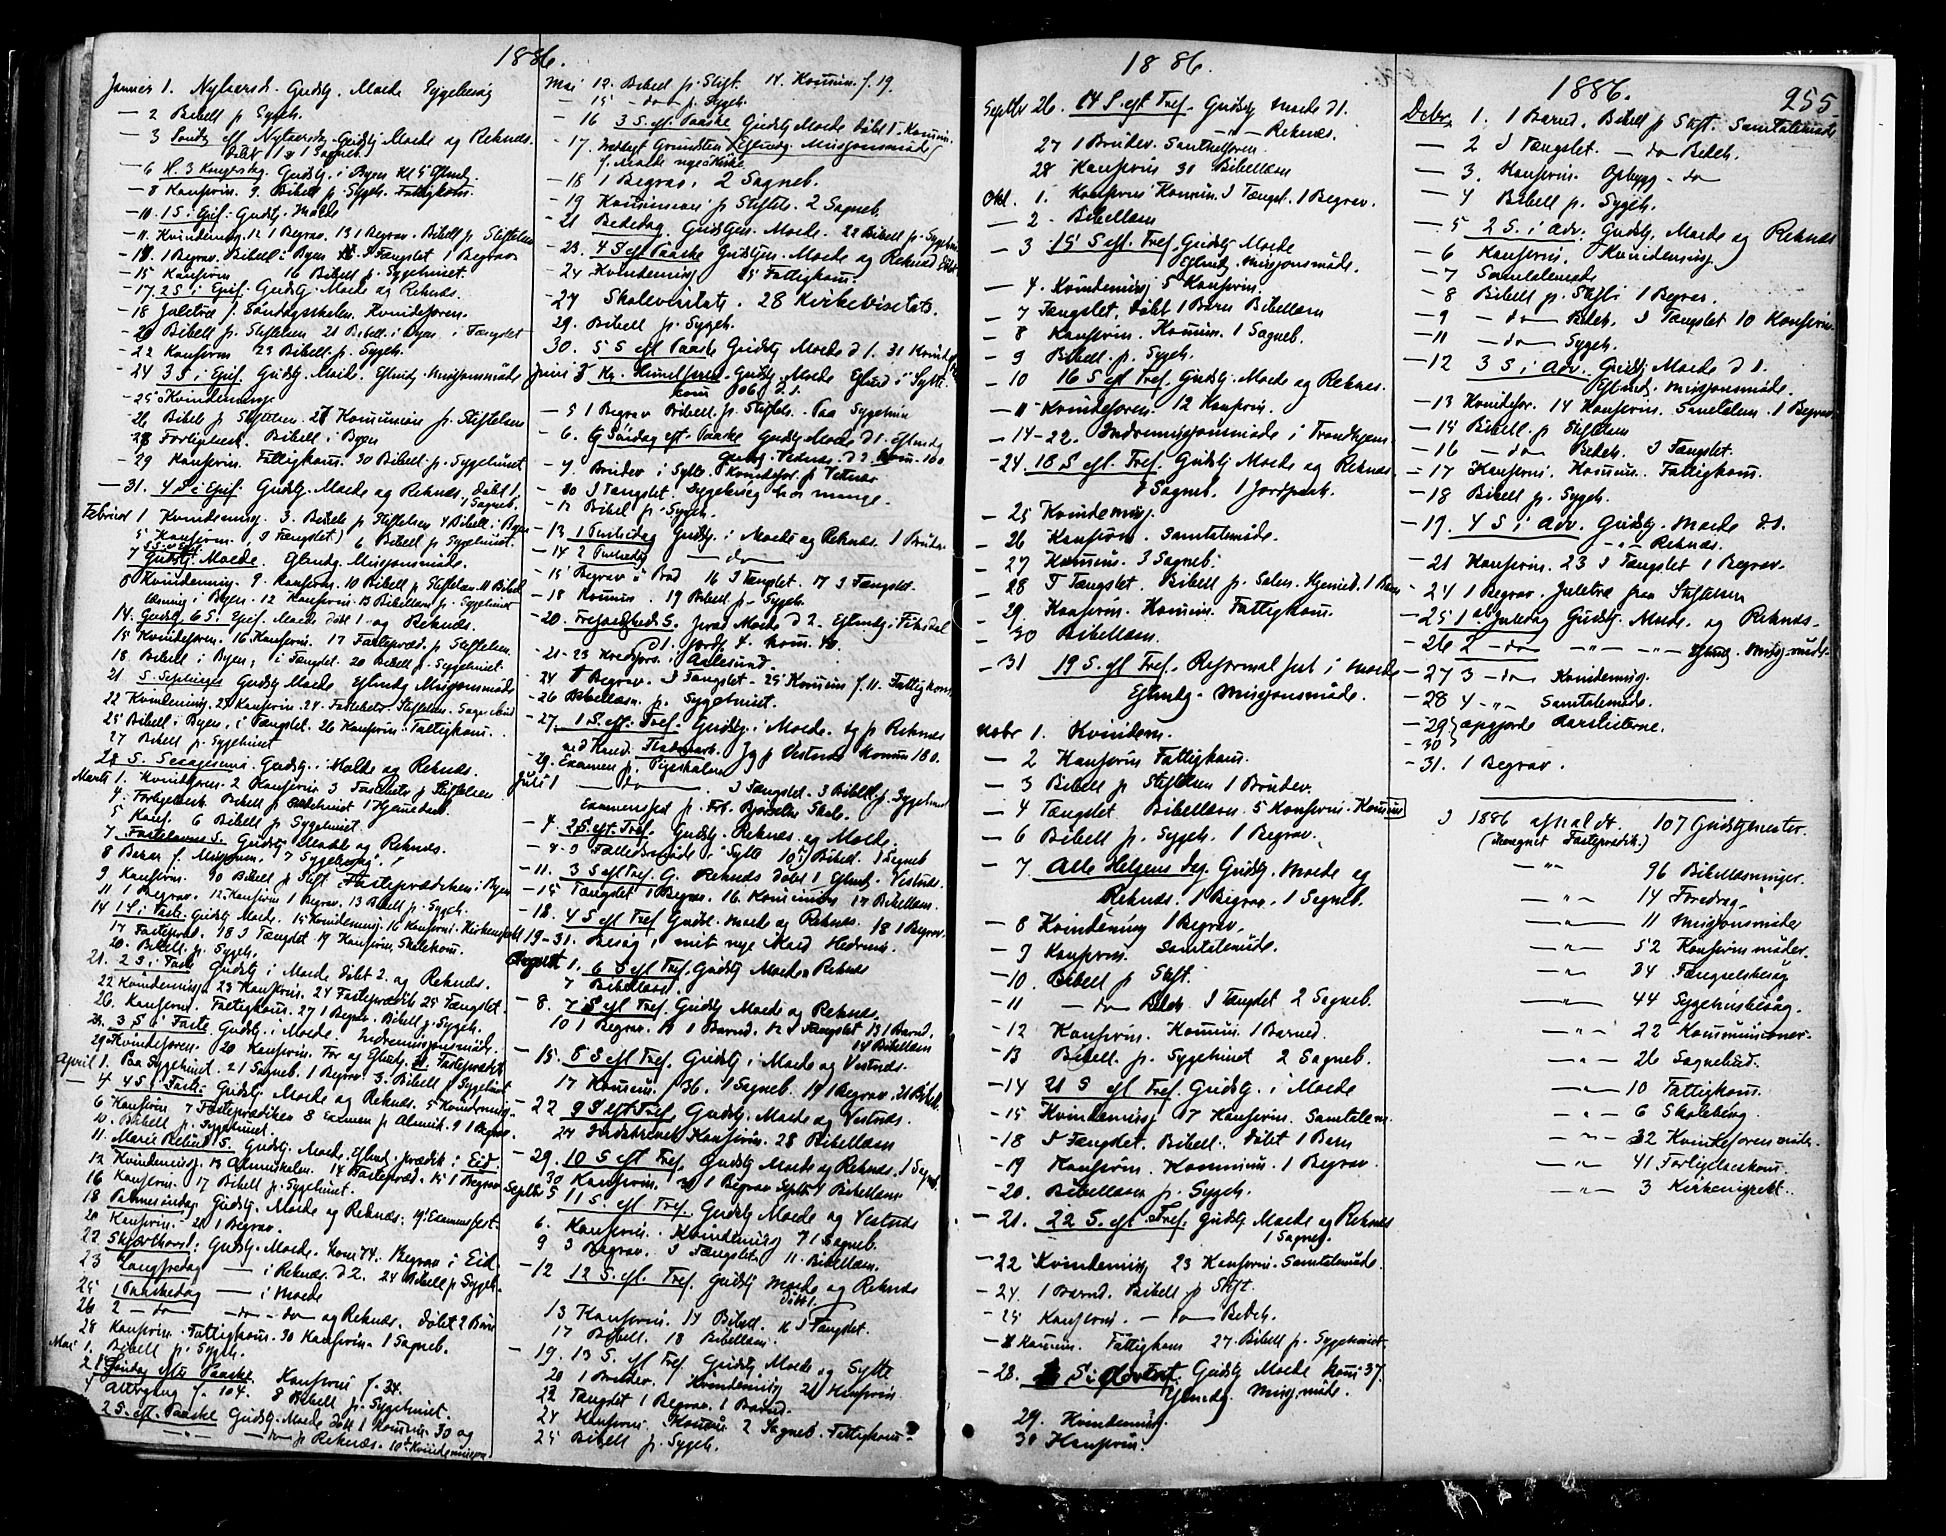 1886.
Januar 1. Nytaarsd. Gudstj. Molde Sygebesøg
— 2 Bibell p Sygeh.
— 3 Sønd. eft Nytaarsd. Gudstj Molde og Reknes.
Døbt 1 1 Sagneb.
— 6 H. 3 Kongersdag. Gudstj. i Byen Kl 5 Eftmdg.
— 8 Konfirm. 9 Bibell p Sygeh. Fattigkom.
— 10. 1 S. i Epif. Gudstj. Molde
— 11. Kvindemisj. 12 1 Begrav. 13 1 Begrav. Bibell p Stiftelsen
1 Begrav. Bibell i Byen I Fængslet 1 Begrav
— 15 Konfirm 16 Bibell p. Sygehuset.
— 17. 2 S i Epif. Gudstj. Molde og Reknes.
— 18 Juletræ f. Søndagsskolen. Kvindeforen.
— 20 Bibell p. Stiftelsen 21 Bibell. i Byen i Fængslet
— 22 Konfirm 23 Bibell. p. Sygeh.
— 24 3 S i Epif. Gudstj. Molde. Eftmdg. Misjonsmøde
— 25 Kvindemisj.
26 Bibel p Stiftelsen. 27 Komunion p. Stiftelsen
28 Forligelsesk. Bibell i Byen
— 29 Konfirm. Fattigkom. 30 Bibell. p. Sygehuset
— 31. 4 S i Epif. Gudstj. Molde og Reknes, døbt 1,
1 Sagneb.
Februar 1 Kvindemisj. 3. Bibell p Stiftelsen 4 Bibell. i Byen
5 Konfirm. (I Fængslet) 6 Bibell p. Sygehuset.
7 Gudstj. Molde. Eftmdg. Misjonsmøde.
8 Kvindemisj. 9. Konfirm. 10 Bibell p Stiftelsen 11 Bibel
læsning i Byen. 12 Konfirm. 13 Bibellæsn p. Sygehuset
14. Gudstj. 6 S. Epif. Molde døbt 1. og Reknes.
15 Kvindeforen. 16 Konfirm. 17 Fastepræd. p. Stiftelsen.
18. Bibell i Byen, i Fængslet. 20 Bibell p. Sygehuset.
21. S. Septuages Gudstj Molde Eftmdg Misjonsmøde
22 Kvindemisj. 24 Konfirm. 24. Stiftelsen. Sagnebud
25 Bibell i Byen, i Fængslet. 26 Konfirm. Fattigkom.
27 Bibell p. Sygehuset
28 S. Sexagesima. Gudstj. i Molde og Reknes.
Marts 1. Kvindeforen. 2 Konfirm 3 p Stiftelsen
4. Forligelsesk. Bibell p 1 Hjemdøb
5 Konf. 6 Bibell p. Sygehuset.
7. Fastelavns S. Gudstj Molde og Reknes.
8 Bazar f. Misjonen. 7 Sygebesøg.
9 Konfirm. 10 Bibell p Stift Fasteprædiken i Byen
11 1 Begrav. 12 Konfirm 1 Begrav. 13 Bibell p. Sygeh.
14 1 S. i Faste. Gudstj Molde. 15 Kvindemisj. 16 Konfirm.
17 Fastepræd. 18 I Fængslet 19 Konfirm. Skolekom.
20. Bibell. p. Sygeh.
21. 2 S. i Faste Gudstj i Molde, døbt 2. og Reknes.
22 Kvindemisj. 23 Konfirm. 24 Fastepræd. 25 Fængslet.
26. Konfirm. Fattigkom. 27 1 Begrav. Bibell p. Sygeh.
28. 3 S i Faste Gudstj. i Molde. Indremisjonsmøde.
29 Kvindeforen. 30 Konfirm. 31. Fastepræd.
April 1. Paa Sygehuset. 2 1 Sagneb. 1 Begrav 3. Bibell p Sygehuset
— 4. 4 S i Faste: Gudstj. Molde og Reknes. 5 Kvindemisj.
6 Konfirm 7 Fasteprædiken 8 Examen p Almuesk. 9 1 Begrav.
10. Bibell p. Sygehuset.
11. Marie Bebud S. Gudstj. Molde. Eftmd. prædik i Eid.
12 Kvindemisj. 13 Almueskolen. 14 Fastepræd. 15 1 Begrav
16 Konfirm. 17 Bibell p. Sygehuset.
18 Palmesøndag. Gudstj. Molde og Reknes. 19 Examensfest.
20 Konfirm. 21 1 Begrav.
22 Skjærthorsd: Gudstj. Molde. Kom 74. 1 Begrav i Eid.
23 Langfredag — i Reknes. d 2. 24 Bibell p Sygeh.
25 1 Paaskedag — i Molde
26 2 — do — do og Reknes. døbt 2 Børn
28 Konfirm. Fattigkom. 30 Konfirm. 1 Sagneb.
Mai 1. Bibell p. Sygeh.
2 1 Søndag eft. Paaske. Konfirm f. 34.
4 Altergang f. 104. 8 Bibell p. Sygehuset.
2 S. eft. Paaske Gudstj. Molde døbt 1 Komun 30 og
— " — — do — p Reknes. 10 Kvindemisjon
Mai 12. Bibell p. Stift. 14. Komun. f. 19.
— 15 — do — p. Sygeh.
— 16 3 S. eft. Paaske Gudstj Molde døbt 1 Komun.
— 17. Nedlagt Grundsten Eftmdg. Misjonsmøde
f. Molde nye Kirke
— 18 1 Begrav. 2 Sagneb.
— 19 Komunion p Stiftels. 2 Sagneb.
— 21 Bededag. Gudstjen. Molde. 22 Bibell p. Sygehus
— 23. 4 S eft Paaske Gudstjen. Molde og Reknes døbt
— 24 Kvindemisj. 25 Fattigkom.
— 27 Skolevisitats. 28 Kirkevisitats.
29. Bibell p. Sygeh.
30. 5 S eft Paaske Gudstj Molde d 1. 31 Kvindef
Juni 3 Kr. Himmelfartsd. Gudstj. Molde Eftmd i Sylte
kom 106. d 2.
— 5 1 Begrav Bibell. p. Stiftels. Paa Sygehus
— 6. 6 Søndag eft. Paaske Gudstj Molde d 1. Eftmdg
Gudstj. Vednes. d 2. Kom. 160
— 7. Brudev i Sylte Kvindefor. p Vetnes
— 10 I Fængslet. Sygebesøg hos mange.
— 12 Bibel p. Sygeh.
— 13. 1 Pintsedag Gudstj. i Molde og Reknes. 1 Brudev.
— 14 2 Pintsedag — do —
— 15 Begrav i Bud 16 I Fængslet. 17 I Fængslet.
— 18 Komun. 19 Bibell. p. Sygeh.
— 20. Trefoldigheds S. Molde d 2. Eftmdg. i Fiksdal
d 1. Jordf. 4. Kom. 40.
— 21-23 Kredsfors. i Aalesund.
— 24 1 Begrav. I Fængslet. 25 Komun f. 11. Fattigkom
— 26 Bibellæsn. p. Sygehuset.
— 27. 1 S. eft. Tref. Gudstj. i Molde. og p Reknes
ved Kand. Flodmark. Jeg p Vestnes Komun 180.
— 29. Examen p. Pigeskolen
Juli 1 — do — I Fængslet. 3 Bibell. p. Sygehus
Examensfest p. Frk. Bjørsets Skole.
— 4. 2 S. eft. Tref. Gudstj. Reknes. og Molde.
— 4-9 Fællesmøde i Sylte 10. Bibell. 1 Sagneb
— 11. 3 S eft Tref. G. Reknes døbt 1 Eftmdg. Vestnes.
— 15 Fængslet 1 Begrav. 16. Komunion 17 Bibellæsn.
— 18. 4 S eft Tref Gudst. Molde og Reknes. 18 1 Begrav.
19-31. Besøg i mit nye Kald Hedrum.
August 1. 6 S eft Tref. Gudstj Molde Reknes
7 Bibellæsn.
— 8. 7 S eft Tref. Gudstj Molde og Reknes.
10 1 Begrav. 11 1 Barnd. 12 I Fængslet 13 1 Barnd.
14 Bibellæsn
— 15. 8 S eft Tref. Gudstj i Molde og Vestnes.
17 Komun. f 36. 1 Sagneb. 19 1 Begrav. 21 Bibell.
— 22 9 S eft Tref Gudstj. Molde og Vestnes.
24 Indskreves Konfirm. 28 Bibellæsn
— 29. 10 S eft Tref. Gudstj Molde og Reknes. 1 Sagneb.
30 Konfirm. 1 Begrav Septb. 4 Bibellæsn
Septb 5 11 S. eft Tref. Gudstj Molde og Vestnes
6. Konfirm. Kvindemisj 7 1 Sagneb.
9 3 Begrav. I Fængslet 11. Bibellæsn.
— 12 12 S. eft. Tref. Gudstj Molde og Reknes
døbt 1.
13 Konfirm. 14 Bibell. 16 I Fængslet.
17 Bibell. 18 Bibellæsn.
— 19. 13 S. eft Tref Gudstj Molde og Sylte
20 1 Brudev. Kvindemisj 21 Konfirm
22 Fængslet 1 Begrav. 1 Barnd.
24 Konfirm. Komun 2 Sagneb. Fattigkom.
25 Bibell p. Sygeh.
1886.
Septbr 26. 14 S. eft Tref. Gudstj Molde d 1.
— " — Reknes.
27 1 Brudev. Samtaleforen.
28 Konfirm 30 Bibellæsn
Okt. 1. Konfirm Komun. I Fængsl. 1 Begrav.
— 2. Bibellæsn
— 3 15 S eft. Tref. Gudstj Molde
Eftmdg. Misjonsmøde.
— 4. Kvindemisj 5 Konfirm.
— 7 Fængslet, døbt 1 Barn Bibellæsn
— 8 Konfirm. Komun. 1 Sagneb.
— 9 Bibell. p. Sygeh.
— 10 16 S eft Tref. Gudstj. Molde og Reknes.
— 11 Kvindeforen. 12 Konfirm.
— 14-22. Indremissjonsmøde i Trondhjem.
— 24 18 S. eft. Tref. Gudstj Molde og Reknes.
1 Sagneb. 1 Jordpaak.
— 25 Kvindemisj.
— 26 Konfirm. Samtalemøde.
— 27 Komun. 3 Sagneb.
— 28 I Fængslet. Bibell p. Salen. Hjemmed. 1 Barn
— 29. Konfirm. Komun. Fattigkom.
— 30 Bibellæsn.
— 31 19 S. eft Tref. Reformat fest i Molde
Eftmdg. Misjonsmøde.
Novbr 1. Kvindem.
— 2 Konfirm Fattigkom.
— 3 Bibell p Stiftelsen 1 Brudev.
— 4 Fængslet Bibellæsn. 5 Konfirm. Komun
— 6 Bibell p. Sygeh. 1 Begrav.
— 7 Alle Helgens Dag. Gudstj. Molde og
Reknes. 1 Begrav. 1 Sagneb.
— 8 Kvindemisj 1 Begrav.
— 9 Konfirm. Samtalemøde.
— 10 Bibell p Stift.
— 11 — do — Bedeh. I Fængslet 2 Sagneb.
— 12 Konfirm. Komun. 1 Barned.
— 13 Bibell. p. Sygehuset 2 Sagneb.
— 14 21 S eft Tref. Gudstj. i Molde
— 15 Kvindemisj 17 Konfirm. Samtalem
— 18 I Fængslet. Bibell. døbt 1 Barn
— 19 Konfirm. Komun. 1 Begrav.
— 20. Bibellæsn p. Sygeh.
— 21. 22 S. eft Tref. Gudstj Molde og Reknes
1 Sagneb.
— 22 Kvindemisj 23 Konfirm. Samtalemøde.
— 24. 1 Barnd. Bibell. p Stift.
— 25 Konfirm. — do — Bedeh.
Komun. Fattigkom 27. Bibell p. Sygehuset
— 28. 1 S i Advent Gudstj Molde Kom 37.
Eftmdg. Misj. møde.
29. Kvindemisj.
30 Konfirm.
1886.
255
Debr. 1. 1 Barnd. Bibell p Stift. Samtalemøde
— 2 I Fængslet. — do — Bedeh.
— 3. Konfirm. Opbygg — do —
— 4 Bibell p. Sygeh.
— 5 2 S. i Adv. Gudstj. Molde og Reknes
— 6 Konfirm. Kvindemisj.
— 7 Samtalemøde
— 8 Bibell p. Stift. 1 Begrav.
— 9 — do — Bedeh. I Fængslet 10 Konfirm.
— 11 — do — Sygeh.
— 12 3 S i Adv. Gudstj Molde d 1.
Eftmdg. Misjonsmøde.
— 13 Kvindefor. 14 Konfirm. Samtalem. 1 Begrav.
— 15 Bibell. p Stiftelsen
— 16 — do — Bedeh. I Fængslet.
— 17 Konfirm. Komun. Fattigkom.
— 18 Bibell p. Sygeh.
— 19. 4 S i Adv. Gudstj. Molde d 1.
— " — Reknes.
— 21 Konfirm. 23 I Fængslet 1 Begrav.
— 24 1 Begrav. Juletræ paa Stiftelsen
— 25 1 Juledag Gudstj. Molde. og Reknes.
— 26 2 — do — — " — — " — Eftmdg. Misj. møde.
— 27 3 — do — Kvindemisj.
— 28 4 — " — Samtalemøde.
— 29 } opgjorde Aarslisterne.
— 30
— 31. 1 Begrav.
I 1886 afholdt. 107 Gudstjenester.
(iberegnet Fastepræd.)
— " — 96 Bibellæsninger.
— " — 14 Foredrag.
— " — 11 Misjonsmøder
— " — 52 Konfirm møder.
— " — 34 Fængselsbesøg
— " — 44 Sygehusbesøg.
— " — 22 Kommunioner.
— " — 26 Sagnebud.
— " — 10 Fattigkom.
— " — 6 Skolebesøg.
— " — 32 Kvindeforen møder.
— " — 41 Forligelseskom.
— " — 3 Kirkeinspekt.